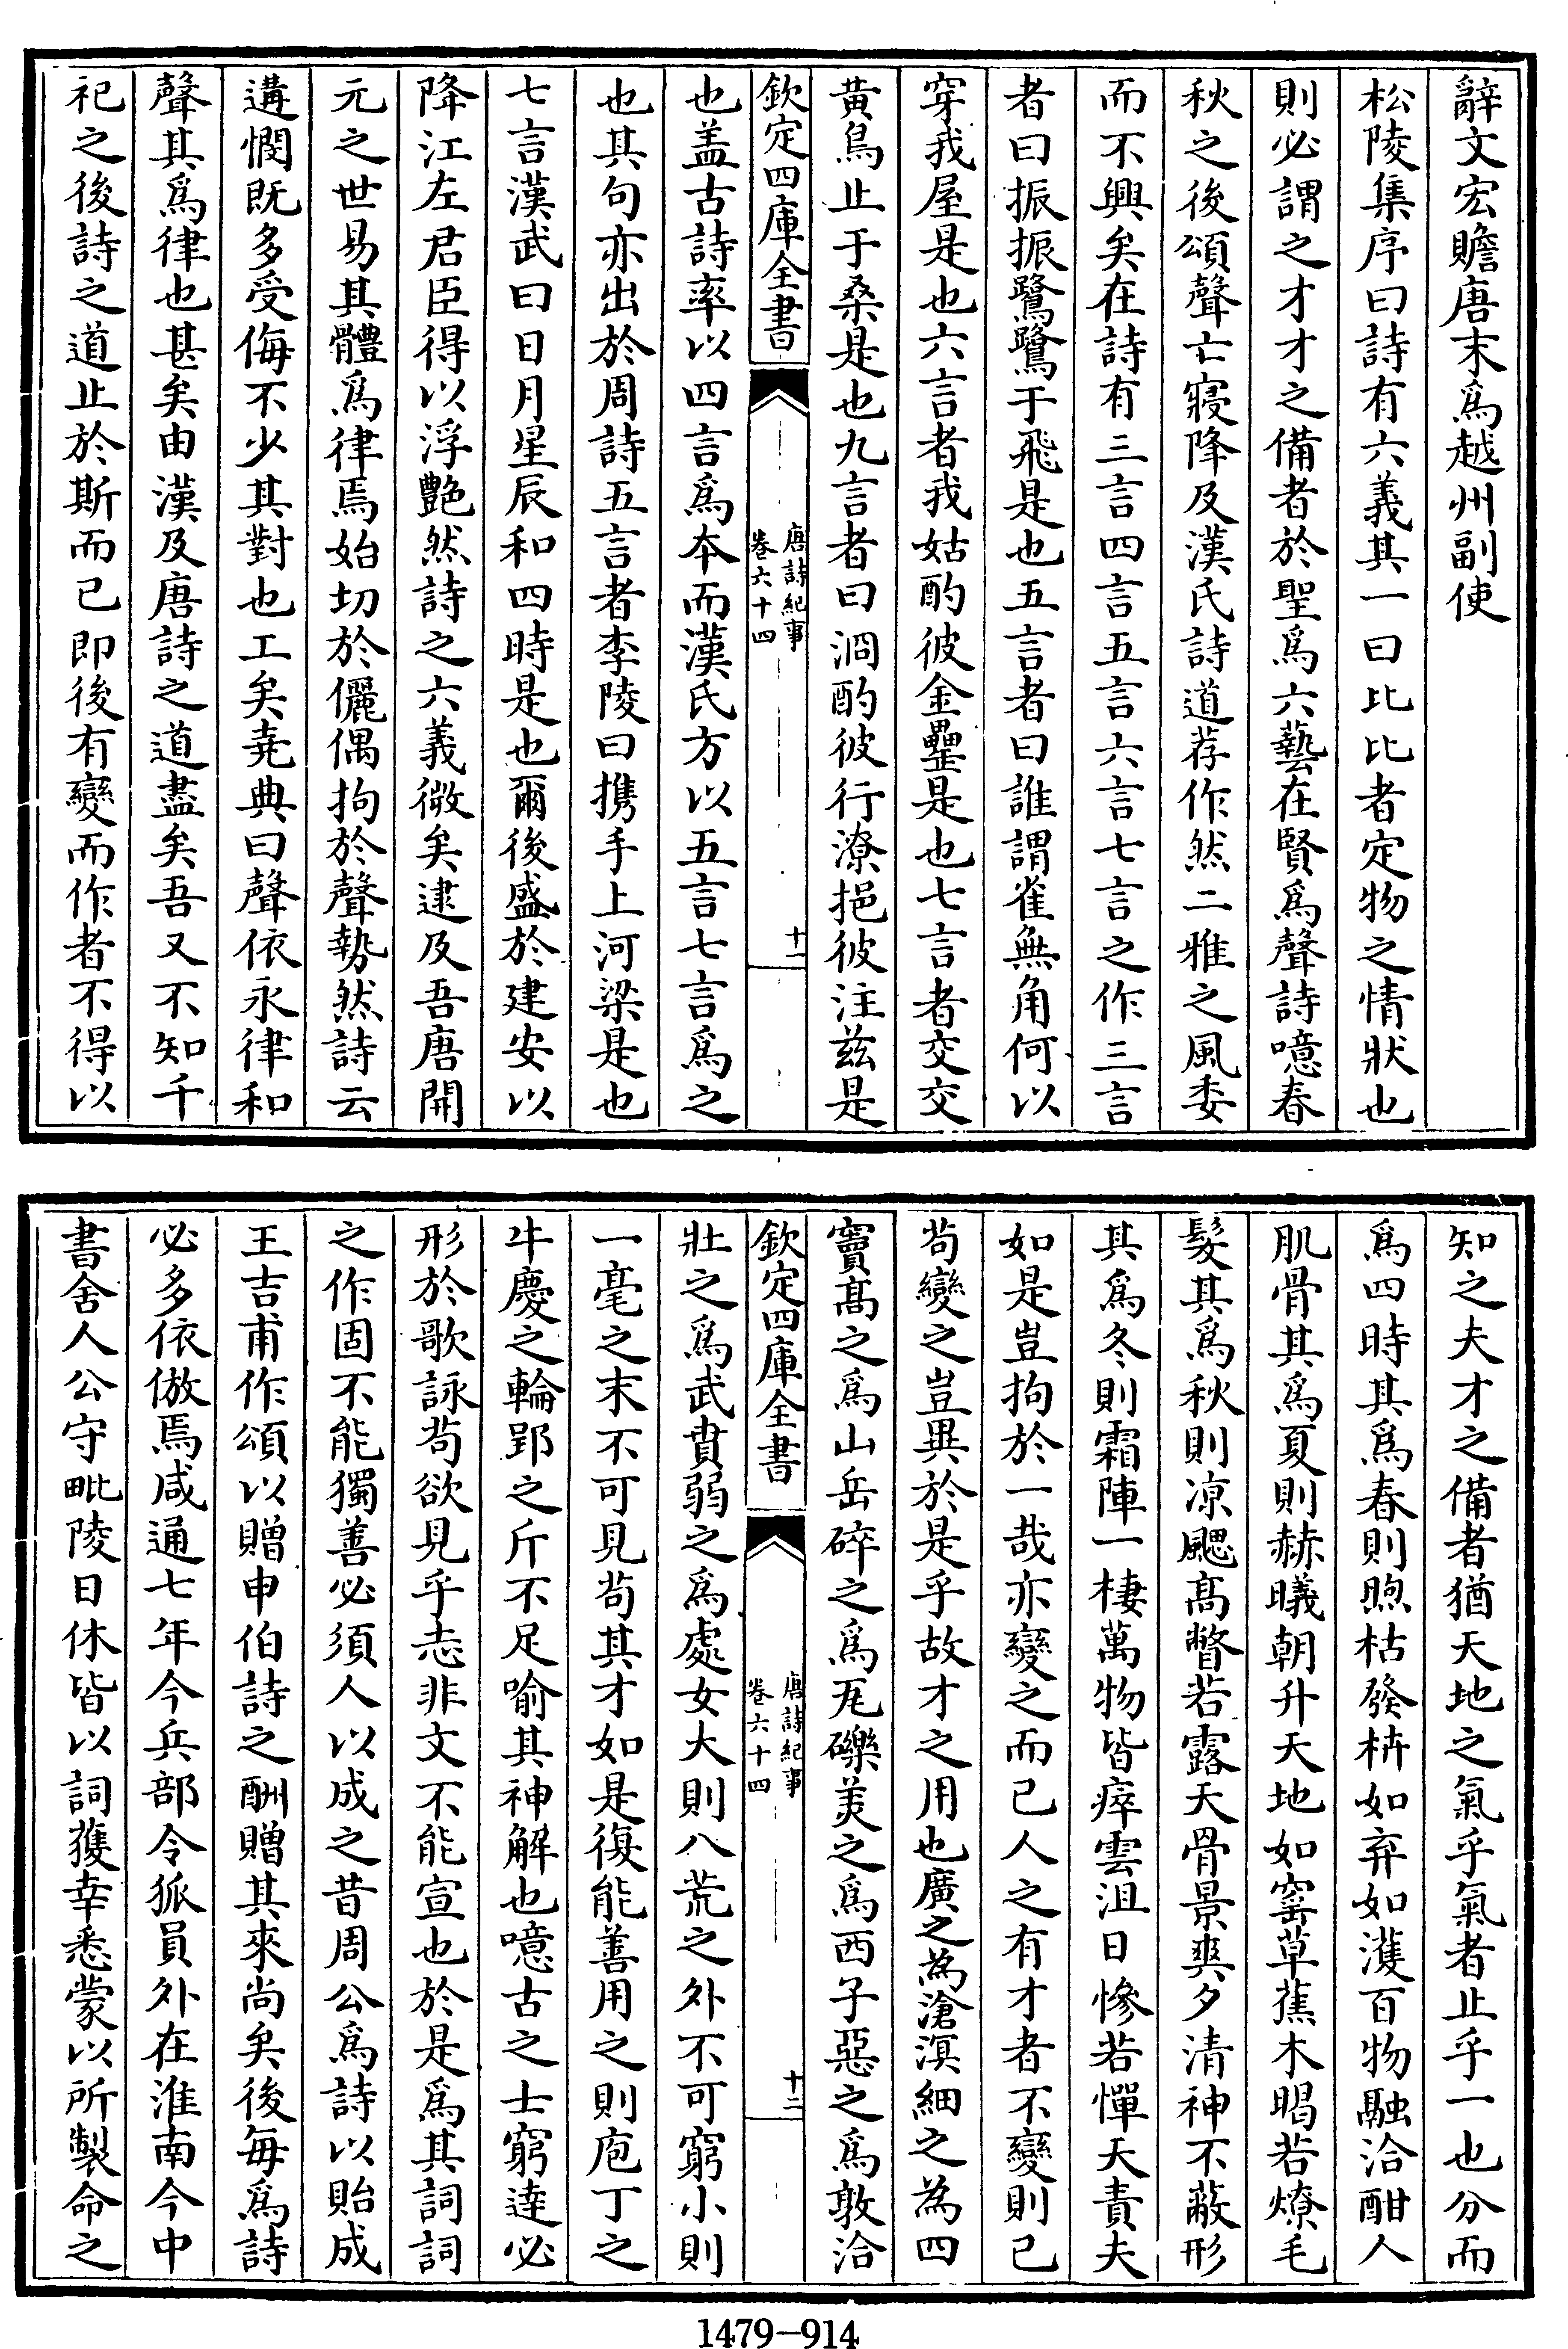 辭文宏贍唐末爲越州副使
松陵集序曰詩有六義其一曰比比者定物之情狀也
則必謂之才才之備者於聖爲六藝在賢爲聲詩噫春
秋之後頌聲亡寢降及漢氏詩道荐作然二雅之風委
而不興矣在詩有三言四言五言六言七言之作三言
者曰振振鷺鷺于飛是也五言者曰誰謂雀無角何以
穿我屋是也六言者我姑酌彼金罍是也七言者交交
黄鳥止于桑是也九言者曰泂酌彼行潦挹彼注兹是
欽定四庫全書
唐詩紀事
卷六十四
十一
也盖古詩率以四言爲本而漢氏方以五言七言爲之
也其句亦出於周詩五言者李陵曰携手上河梁是也
七言漢武曰日月星辰和四時是也爾後盛於建安以
降江左君臣得以浮艷然詩之六義微矣逮及吾唐開
元之世易其體爲律焉始切於儷偶拘於聲勢然詩云
遘憫既多受侮不少其對也工矣堯典曰聲依永律和
聲其爲律也甚矣由漢及唐詩之道盡矣吾又不知千
祀之後詩之道止於斯而已即後有變而作者不得以
知之夫才之備者猶天地之氣乎氣者止乎一也分而
爲四時其爲春則煦枯發枿如弃如濩百物融洽酣人
肌骨其爲夏則赫曦朝升天地如窰草蕉木暍若燎毛
髮其爲秋則凉颸髙瞥若露天骨景爽夕清神不蔽形
其爲冬則霜陣一棲萬物皆瘁雲沮日慘若憚天責夫
如是豈拘於一哉亦變之而已人之有才者不變則已
苟變之豈異於是乎故才之用也廣之為滄溟細之為四
竇髙之爲山岳碎之爲瓦礫美之爲西子惡之爲敦洽
欽定四庫全書
唐詩紀事
卷六十四
十二
壯之爲武賁弱之爲處女大則八荒之外不可窮小則
一毫之末不可見苟其才如是復能善用之則庖丁之
牛慶之輪郢之斤不足喻其神解也噫古之士窮達必
形於歌詠苟欲見乎志非文不能宣也於是爲其詞詞
之作固不能獨善必須人以成之昔周公爲詩以貽成
王吉甫作頌以贈申伯詩之酬贈其來尚矣後毎爲詩
必多依倣焉咸通七年今兵部令狐員外在淮南今中
書舍人公守毗陵日休皆以詞獲幸悉蒙以所製命之
1479-914